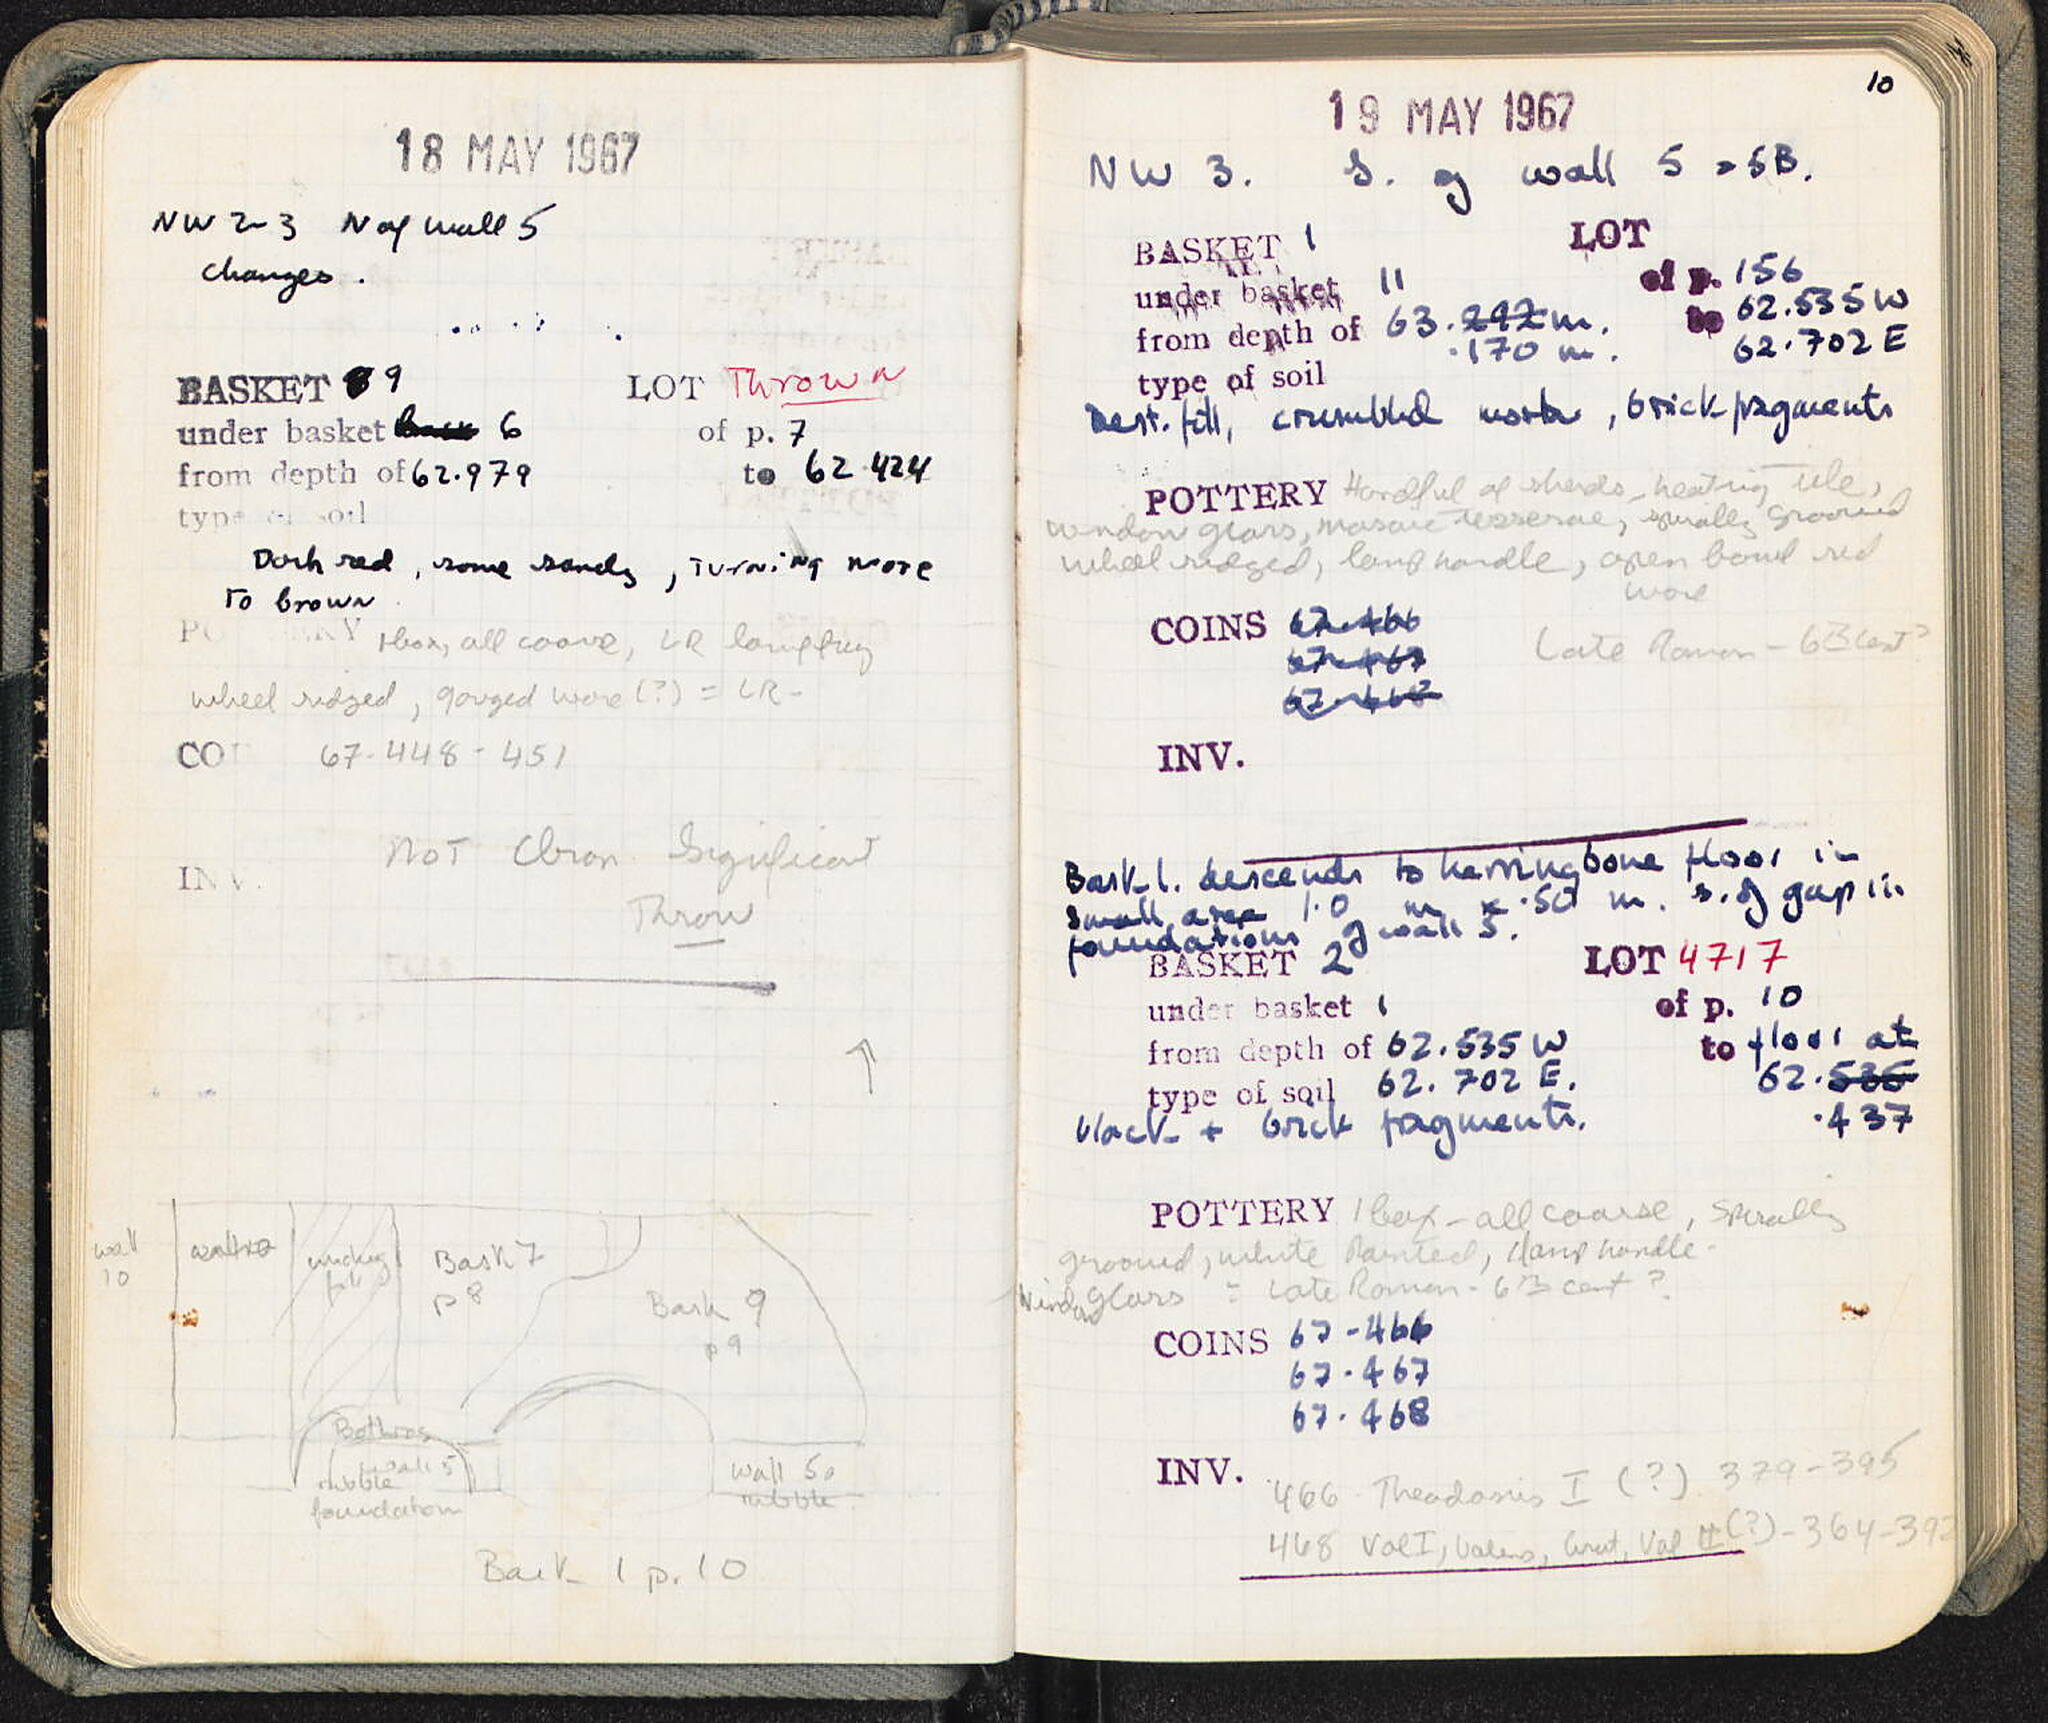 18 MAY 1967
NW 2-3 N of wall 5
changes.
BASKET 9 LOT Thrown
under basket 6 of p. 7
from depth of 62.979 to 62.424
type of soil
Dark red, some sandy, turning more
to brown.
POTTERY 1 box, all coarse, LR lamp frag
wheel ridged, gouged ware (?) = LR-
COI 67-448-451
INV. Not Chron Significant
Throw
wall
10
Bask 7
p 8
Bask 9
p 9
Bothros
wall 5
rubble
foundation
wall 5a
rubble
Bask 1 p. 10
10
19 MAY 1967
NW 3. S. of wall 5 + 5B.
BASKET 1 LOT
under basket 11 of p. 156
from depth of 63.292 m. to 62.535 W
.170 m. 62.702 E
type of soil
Dest. fill, crumbled mortar, brick fragments
POTTERY Handful of sherds, heating tile,
window glass, mosaic tesserae, spirally grooved
wheel ridged, lamp handle, open bowl red
ware
COINS 67-466
67-467
67-468
Late Roman - 6th cent?
INV.
Bask 1. descends to herringbone floor in
small area 1.0 m x .50 m. s. of gap in
foundations of wall 5.
BASKET 2 LOT 4717
under basket 1 of p. 10
from depth of 62.535 W to floor at
type of soil 62.702 E. 62.535
.437
black + brick fragments.
POTTERY 1 box - all coarse, spirally
grooved, white painted, lamp handle -
window glass = Late Roman - 6th cent?
COINS 67-466
67-467
67-468
INV. 466 Theodosius I (?) 379-395
468 Val I, Valens, Grat, Val II (?) - 364-392